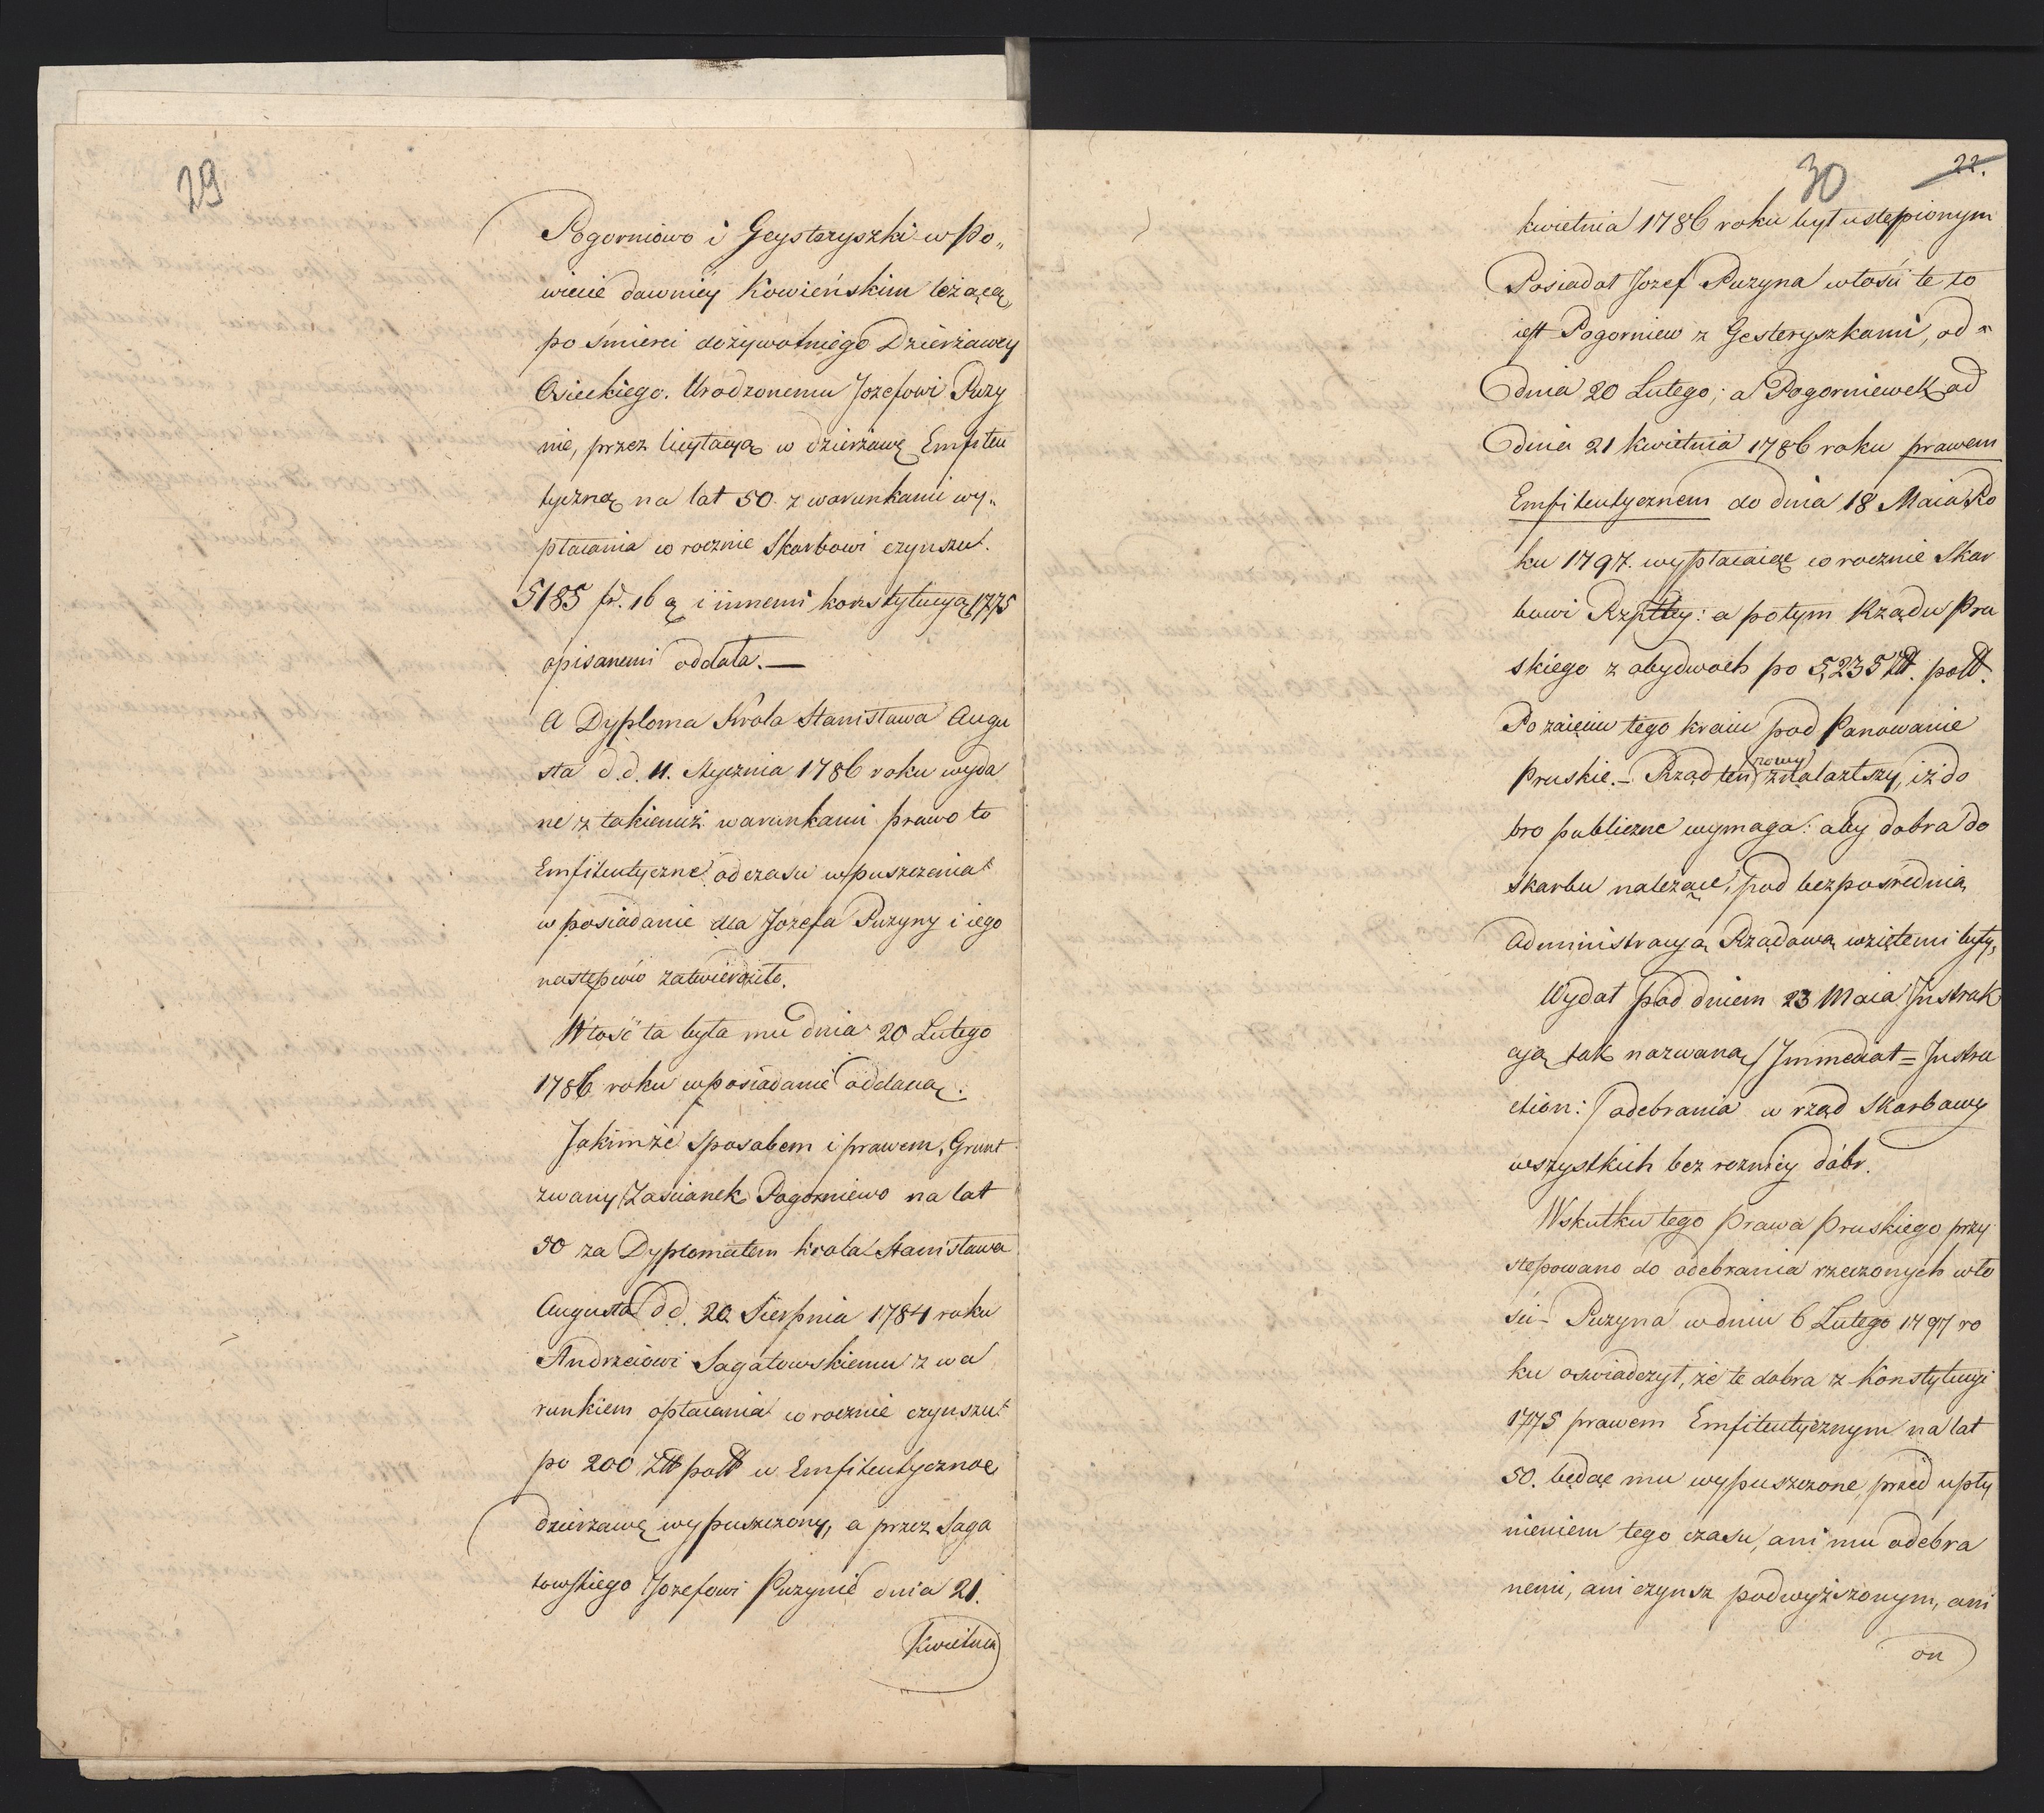 29
Pogorniowo i Geysteryszki w Po„
wiecie dawniey Kowieńskim leżącą,
po śmierci dożywotniego Dzierżawcy
Osieckiego. Urodzonemu Jozefowi Puzy
nie, przez licytacyą w dzierżawę Emfiteu
tyczną na lat 50. z warunkami wy„
płacania corocznie Skarbowi czynszu
5185 fr. 16 g i innemi konstytucyą 1775
opisanemi oddała. —
A Dyploma Króla Stanisława Augu
sta d. d. 11. Stycznia 1786 roku wyda
ne z takiemiż warunkami prawo to
Emfiteutyczne od czasu wpuszczenia
w posiadanie dla Jozefa Puzyny i iego
następców zatwierdziło.
Włość ta była mu dnia 20 Lutego
1786 roku w posiadanie oddaną.
Jakimże sposobem i prawem, Grunt
zwany Zascianek Pogorniewo na lat
50 za Dyplomatem Krola Stanisława
Augusta dd. 20 Sierpnia 1784 roku
Andrzeiowi Sagatowskiemu z wa
runkiem opłacania corocznie czynszu
po 200 Złł poll w Emfiteutyczną
dzierżawę wypuszczony, a przez Saga
towskiego Jozefowi Puzynie dnia 21.
Kwietnia
30
22.
kwietnia 1786 roku był ustępionym
Posiadał Jozef Puzyna włości te to
iest Pogorniew z Gesteryszkami, od
dnia 20 Lutego; a Pogorniewek od
dnia 21 kwietnia 1786 roku prawem
Emfiteutycznem do dnia 18 Maia Ro
ku 1797. wypłacaiąc corocznie Skar
bowi Rzpltey: a potym Rządu Pru
skiego z obydwoch po 5,235 Złł. poll.
Po zaięciu tego kraiu pod Panowanie
Pruskie. – Rząd ten nowy znalazłszy, iż do
bro publiczne wymaga: aby dobra do
skarbu należące, pod bezpośrednią
Administracyą Rządową wziętemi były,
Wydał pod dniem 23 Maia Instruk
cyą tak nazwaną / Immediat = Instru
ction: / odebrania w rząd Skarbowy
wszystkich bez roznicy dóbr.
Wskutku tego Prawa Pruskiego przy
stępowano do odebrania rzeczonych wło
ści – Puzyna w dniu 6 Lutego 1797 ro
ku oswiadczył, że te dobra z Konstytucyi
1775 prawem Emfiteutycznym na lat
50. będąc mu wypuszczone, przed upły
nieniem tego czasu, ani mu odebra
nemi, ani czynsz podwyższonym, ani
on